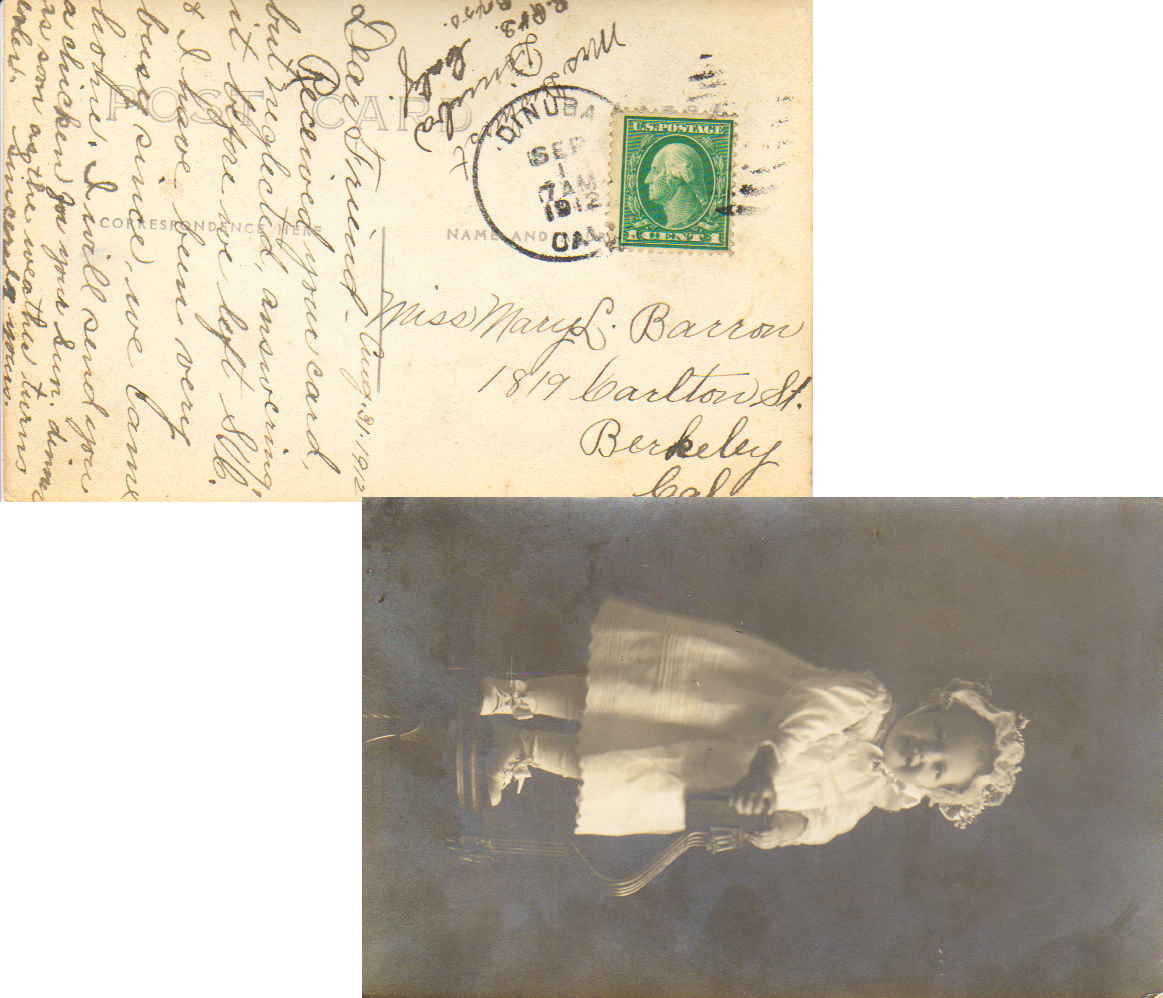 POST CARD
CORRESPONDENCE HERE
NAME AND
DINUBA
SEP
1
7 AM
1912
CAL
U.S. POSTAGE
Miss Mary L. Barron
1819 Carlton St.
Berkeley
Cal
Aug. 31. 1912
Dear Friend -
Received your card,
but neglected, answering
it before we left S.C.
& I have been very
busy since, we came
home. I will send you
a chicken for your Sun. dinner
as soon as the weather turns
cooler.
Sincerely yours.
Mrs
Dinuba
Calif